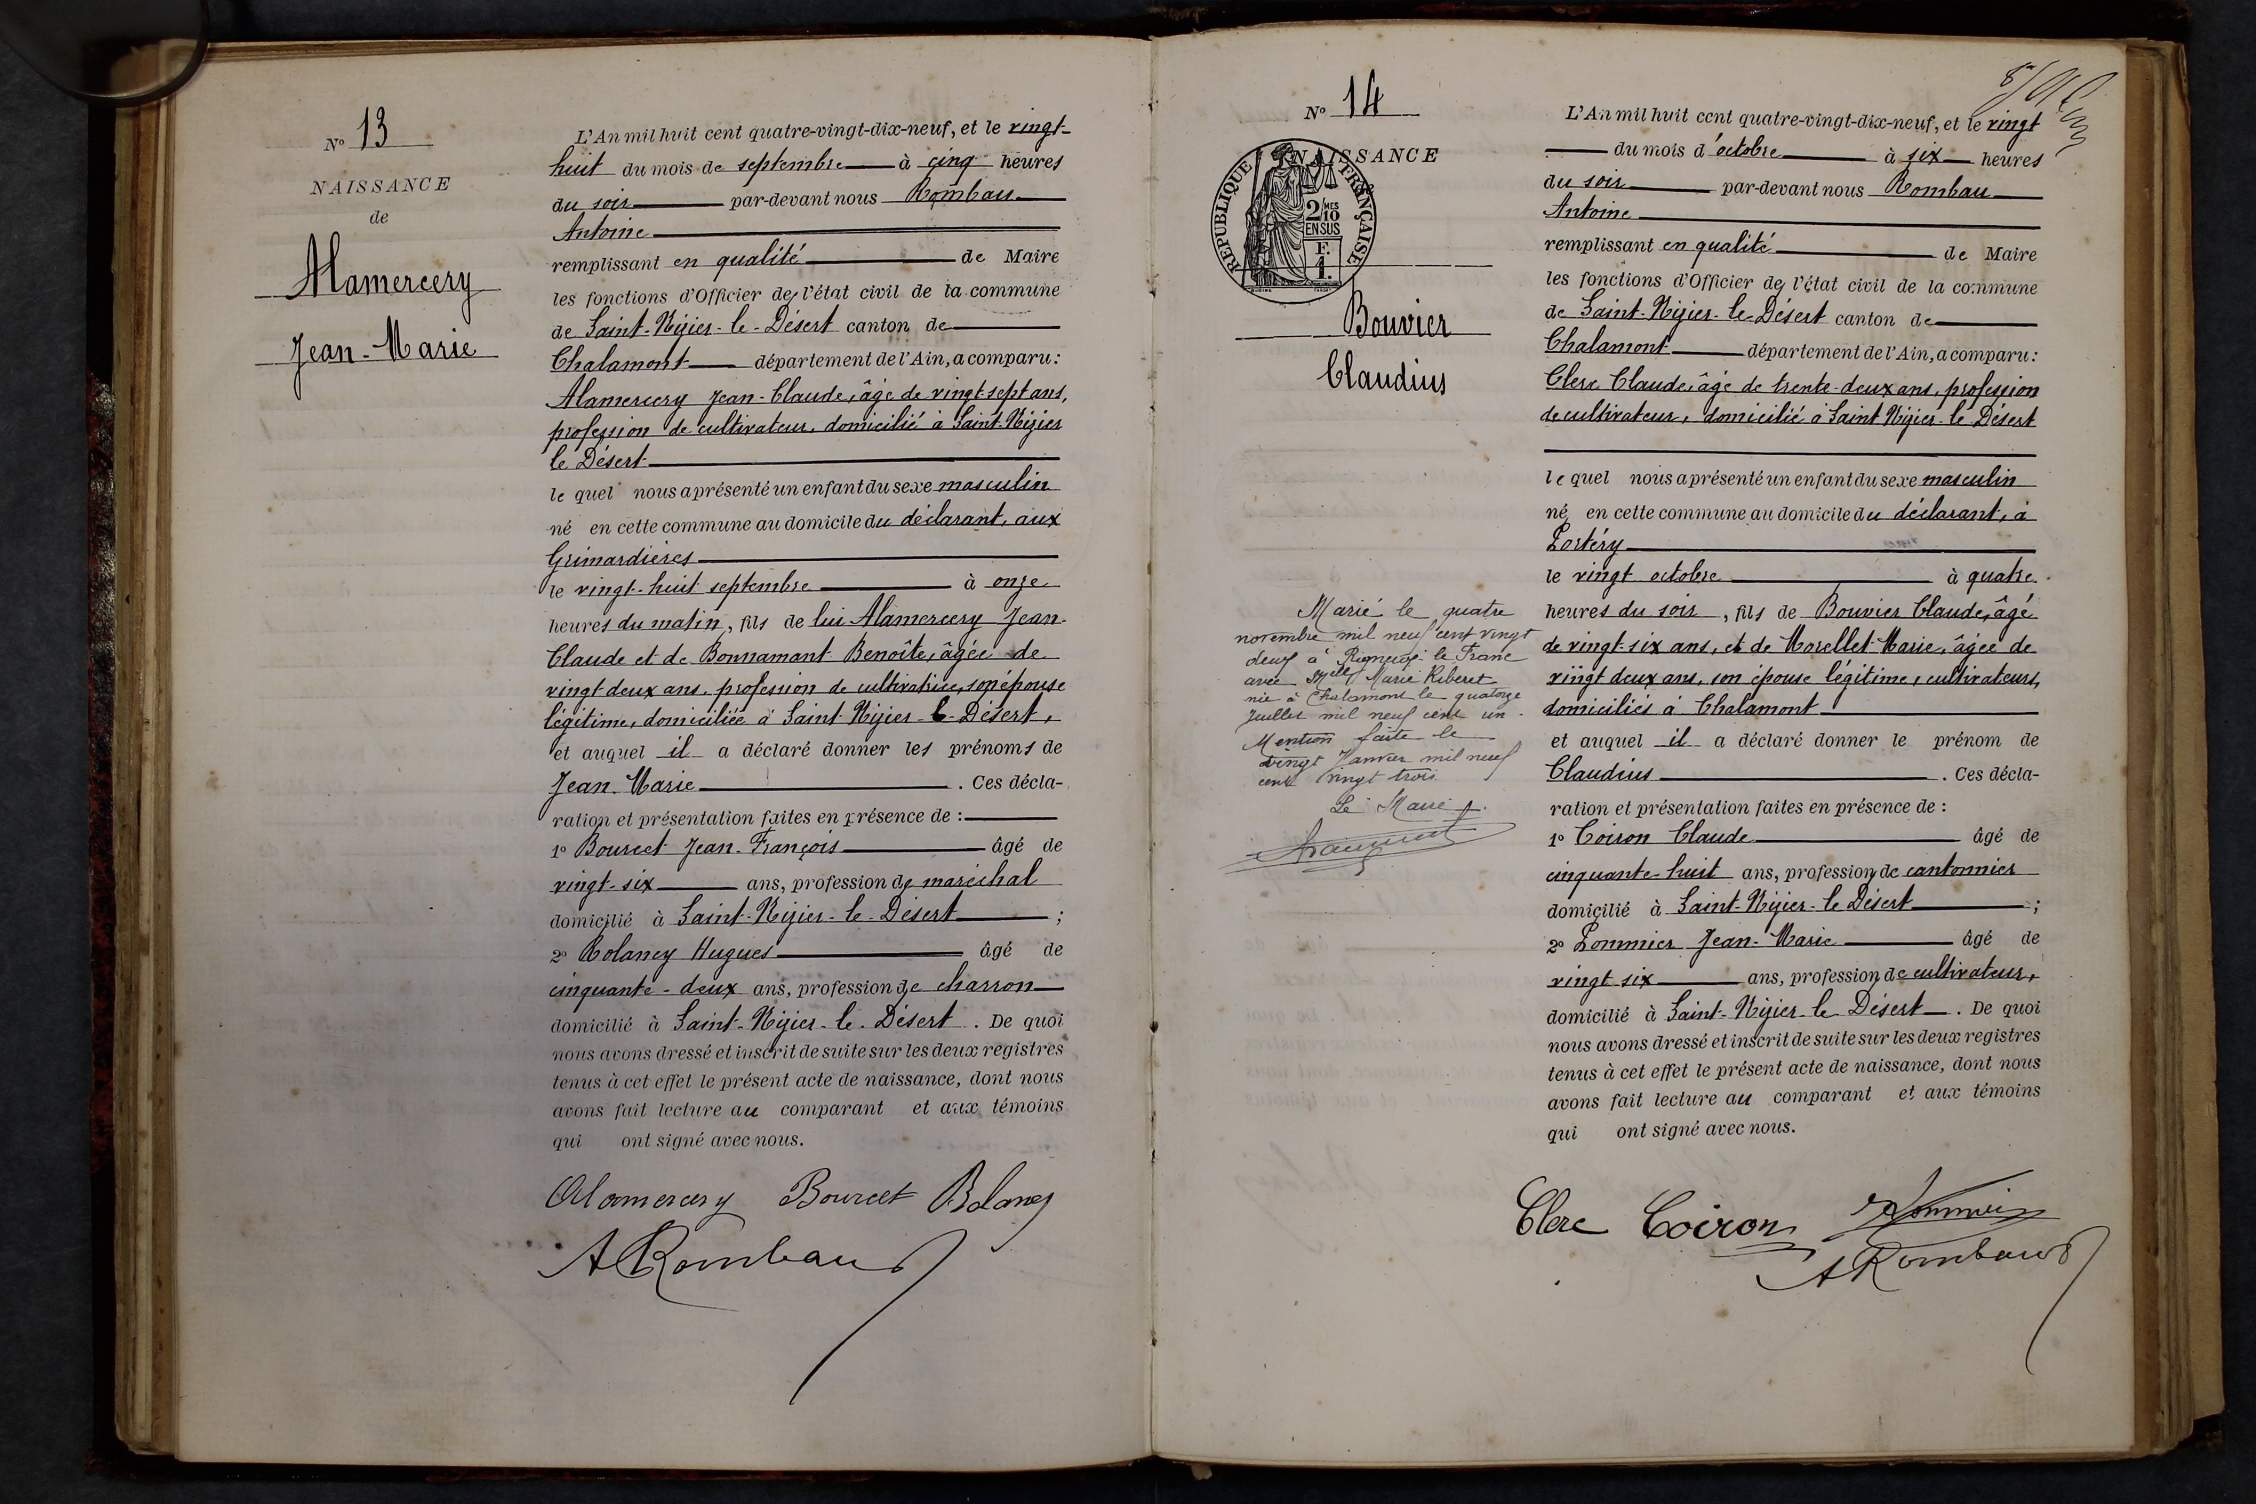 No 13
NAISSANCE
de
Alamercery
Jean-Marie
L'An mil huit cent quatre-vingt-dix-neuf, et le vingt-
huit du mois de septembre à cinq heures
du soir par-devant nous Rombau
Antoine
remplissant en qualité de Maire
les fonctions d'Officier de l'état civil de la commune
de Saint-Nizier-le-Désert canton de
Chalamont département de l'Ain, a comparu :
Alamercery Jean-Claude, âgé de vingt-sept ans,
profession de cultivateur, domicilié à Saint-Nizier
le Désert
le quel nous a présenté un enfant du sexe masculin
né en cette commune au domicile du déclarant, aux
Grimardières
le vingt-huit septembre à onze
heures du matin, fils de lui Alamercery Jean-
Claude et de Bonnamant Benoîte, âgée de
vingt deux ans, profession de cultivatrice, son épouse
légitime, domiciliée à Saint-Nizier-le-Désert,
et auquel il a déclaré donner les prénoms de
Jean-Marie. Ces décla-
ration et présentation faites en présence de :
1º Bourcet Jean-François âgé de
vingt-six ans, profession de maréchal
domicilié à Saint-Nizier-le-Désert ;
2º Bolancy Hugues âgé de
cinquante-deux ans, profession de charron
domicilié à Saint-Nizier-le-Désert. De quoi
nous avons dressé et inscrit de suite sur les deux registres
tenus à cet effet le présent acte de naissance, dont nous
avons fait lecture au comparant et aux témoins
qui ont signé avec nous.
Alamercery Bourcet Bolancy
A Rombau
No 14
NAISSANCE
REPUBLIQUE FRANÇAISE
2/10 MES
EN SUS
F.
1.
Bouvier
Claudius
Marié le quatre
novembre mil neuf cent vingt
deux à Rigneux-le Franc
avec Melle Marie Riberet
née à Chalamont le quatorze
Juillet mil neuf cent un.
Mention faite le
vingt Janvier mil neuf
cent vingt trois
Le Maire
L'An mil huit cent quatre-vingt-dix-neuf, et le vingt
du mois d'octobre à six heures
du soir par-devant nous Rombau
Antoine
remplissant en qualité de Maire
les fonctions d'Officier de l'état civil de la commune
de Saint-Nizier-le-Désert canton de
Chalamont département de l'Ain, a comparu :
Clerc Claude, âgé de trente-deux ans, profession
de cultivateur, domicilié à Saint Nizier-le Désert
le quel nous a présenté un enfant du sexe masculin
né en cette commune au domicile du déclarant, à
Portéry
le vingt octobre à quatre
heures du soir, fils de Bouvier Claude, âgé
de vingt-six ans, et de Morellet Marie, âgée de
vingt deux ans, son épouse légitime, cultivateurs,
domiciliés à Chalamont
et auquel il a déclaré donner le prénom de
Claudius. Ces décla-
ration et présentation faites en présence de :
1º Coiron Claude âgé de
cinquante-huit ans, profession de cantonnier
domicilié à Saint-Nizier-le Désert ;
2º Pommier Jean-Marie âgé de
vingt six ans, profession de cultivateur,
domicilié à Saint-Nizier-le Désert. De quoi
nous avons dressé et inscrit de suite sur les deux registres
tenus à cet effet le présent acte de naissance, dont nous
avons fait lecture au comparant et aux témoins
qui ont signé avec nous.
Clerc Coiron Pommier
A Rombau